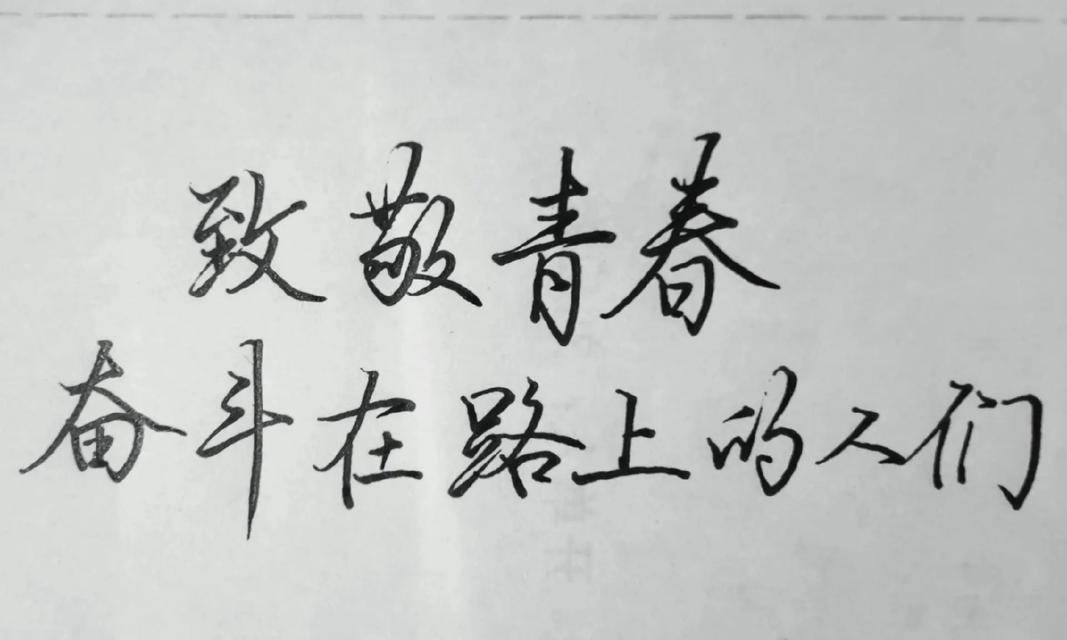 致敬青春
奋斗在路上的人们